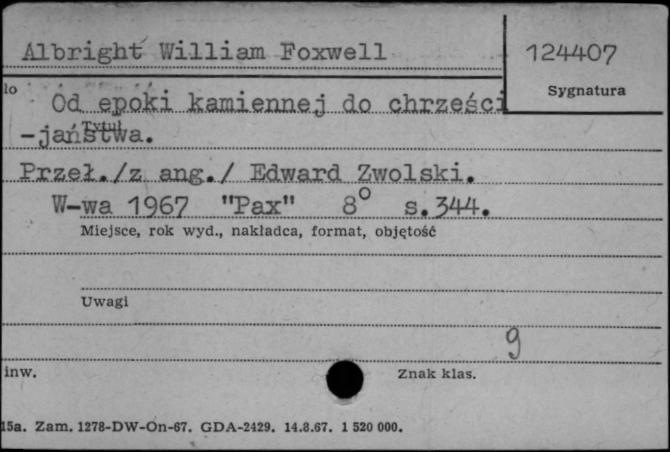 Albright William Foxwell
124407
Sygnatura
lo
Od epoki kamiennej do chrześci
-jaństwa.
Tytuł
Przeł./z ang./ Edward Zwolski.
W-wa 1967 "Pax" 8° s.344.
Miejsce, rok wyd., nakładca, format, objętość
Uwagi
9
inw.
Znak klas.
15a. Zam. 1278-DW-On-67. GDA-2429. 14.8.67. 1 520 000.